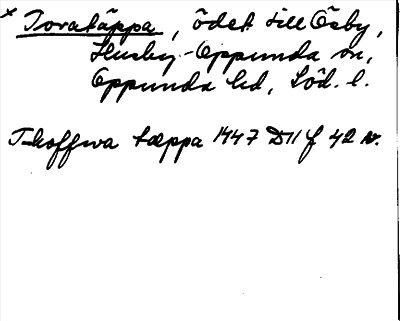 x Toratäppa, ödet till Åsby,
Husby-Oppunda sn,
Oppunda hd, Söd. l.
Thoffwa tæppa 1447 D11 f 42 v.